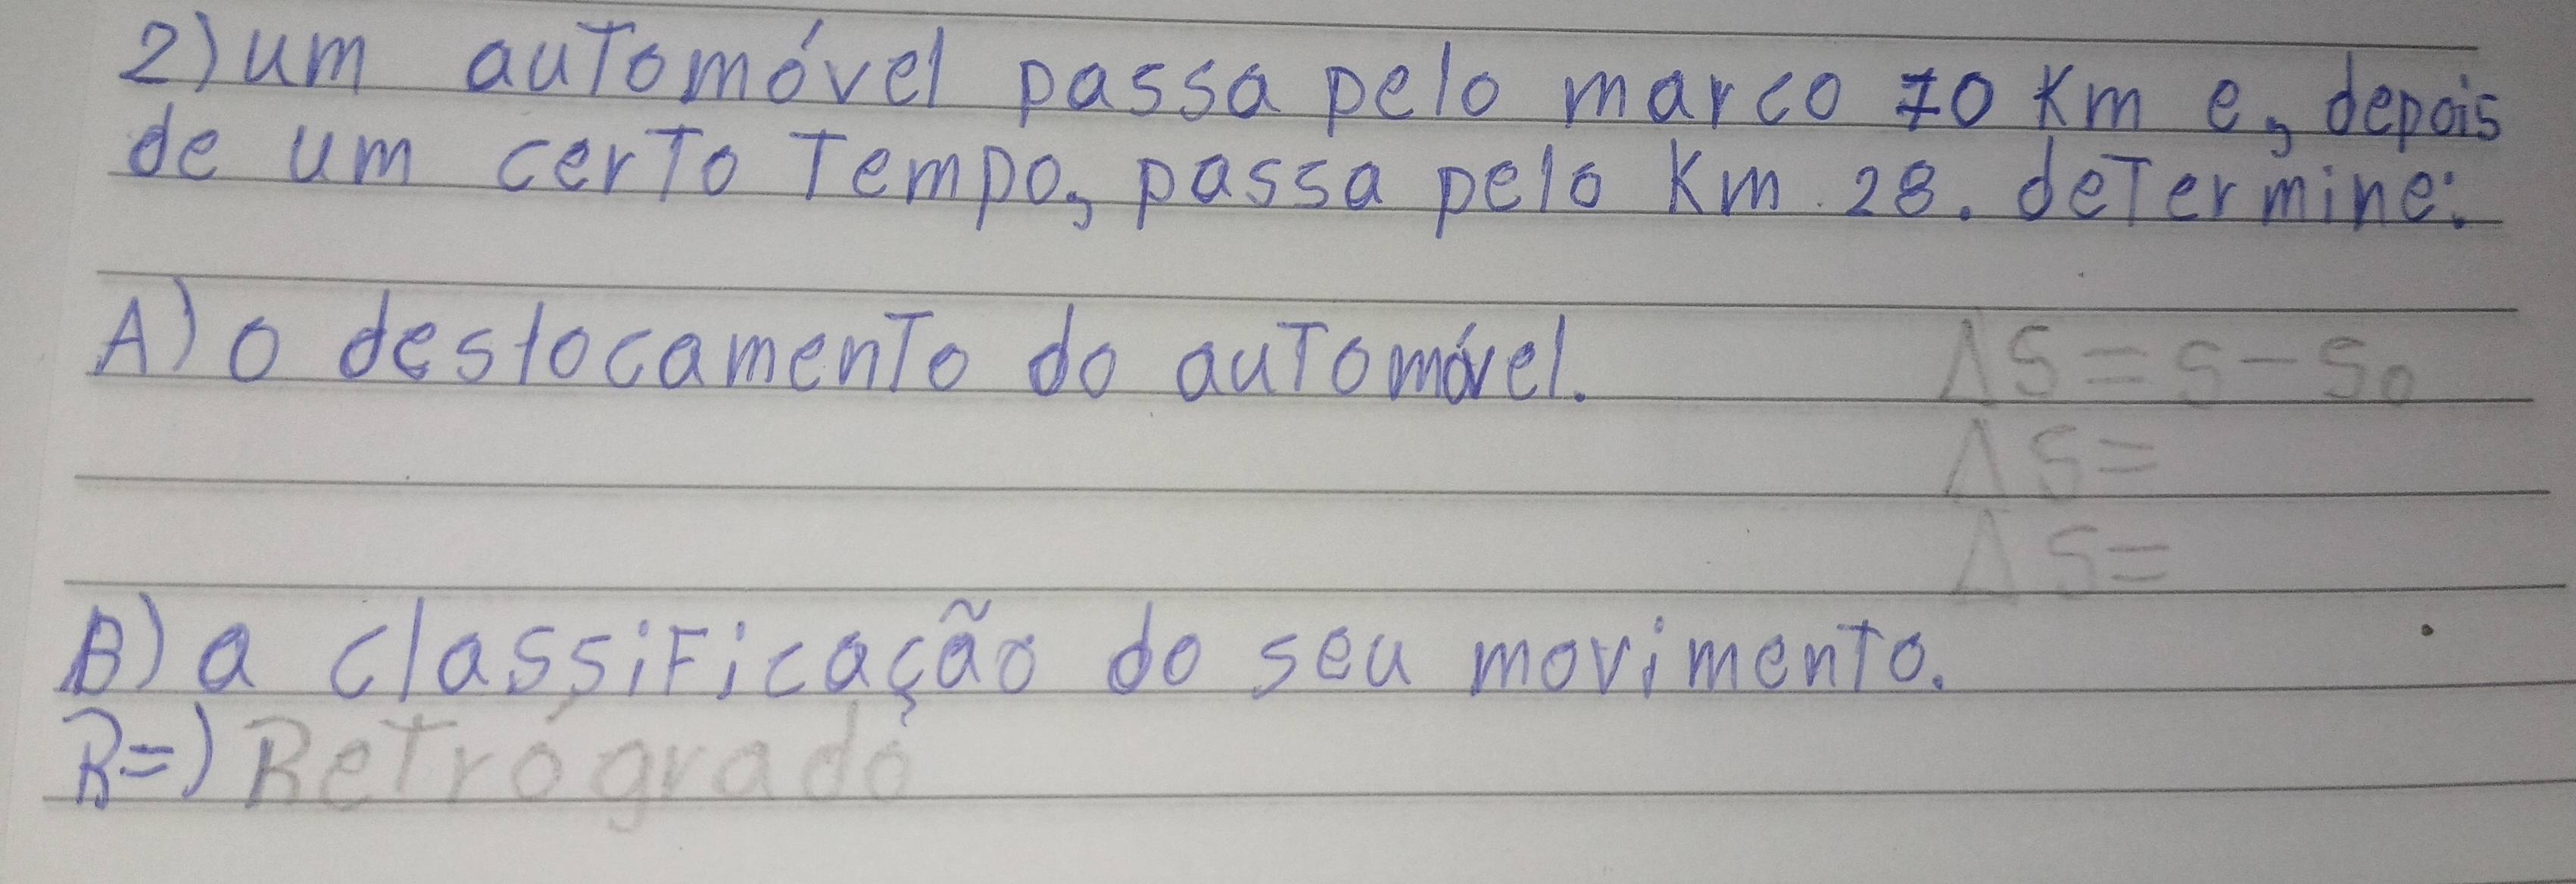 2) um automóvel passa pelo marco 70 Km e, depois
de um certo Tempo, passa pelo Km 28. determine:
A) o deslocamento do automóvel. ΔS = S - S₀
ΔS =
ΔS =
B) a classificação do seu movimento.
R=) Retrógrado